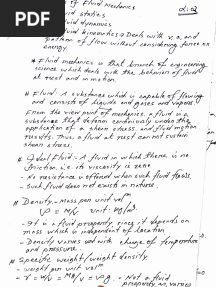 PDF
of Fluid Mechanics
fluid statics
fluid dynamics
fluid kinematics → Deals with v, a, and
pattern of flow without considering force or
energy.
# Fluid mechanics is that branch of engineering
science which deals with the behaviors of fluid
at rest and in motion.
# Fluid: A substance which is capable of flowing
and consists of liquids and gases and vapors.
From the view point of mechanics, a fluid is a
substance that deforms continuously under the
application of a shear stress, and fluid motion
results. Thus, a fluid at rest can not sustain
shear stress.
# Ideal Fluid: A fluid in which there is no
friction i.e. its viscosity is zero.
- No resistance is offered when such fluid flows.
- Such fluid does not exists in nature.
# Density - Mass per unit volm
ρ = M/V unit: kg/m³
- It is a fluid property since it depends on
mass which is independent of location
- Density varies with change of temperature
and pressure.
# Specific weight/weight density
- weight per unit volm
- Not a fluid
property as varies